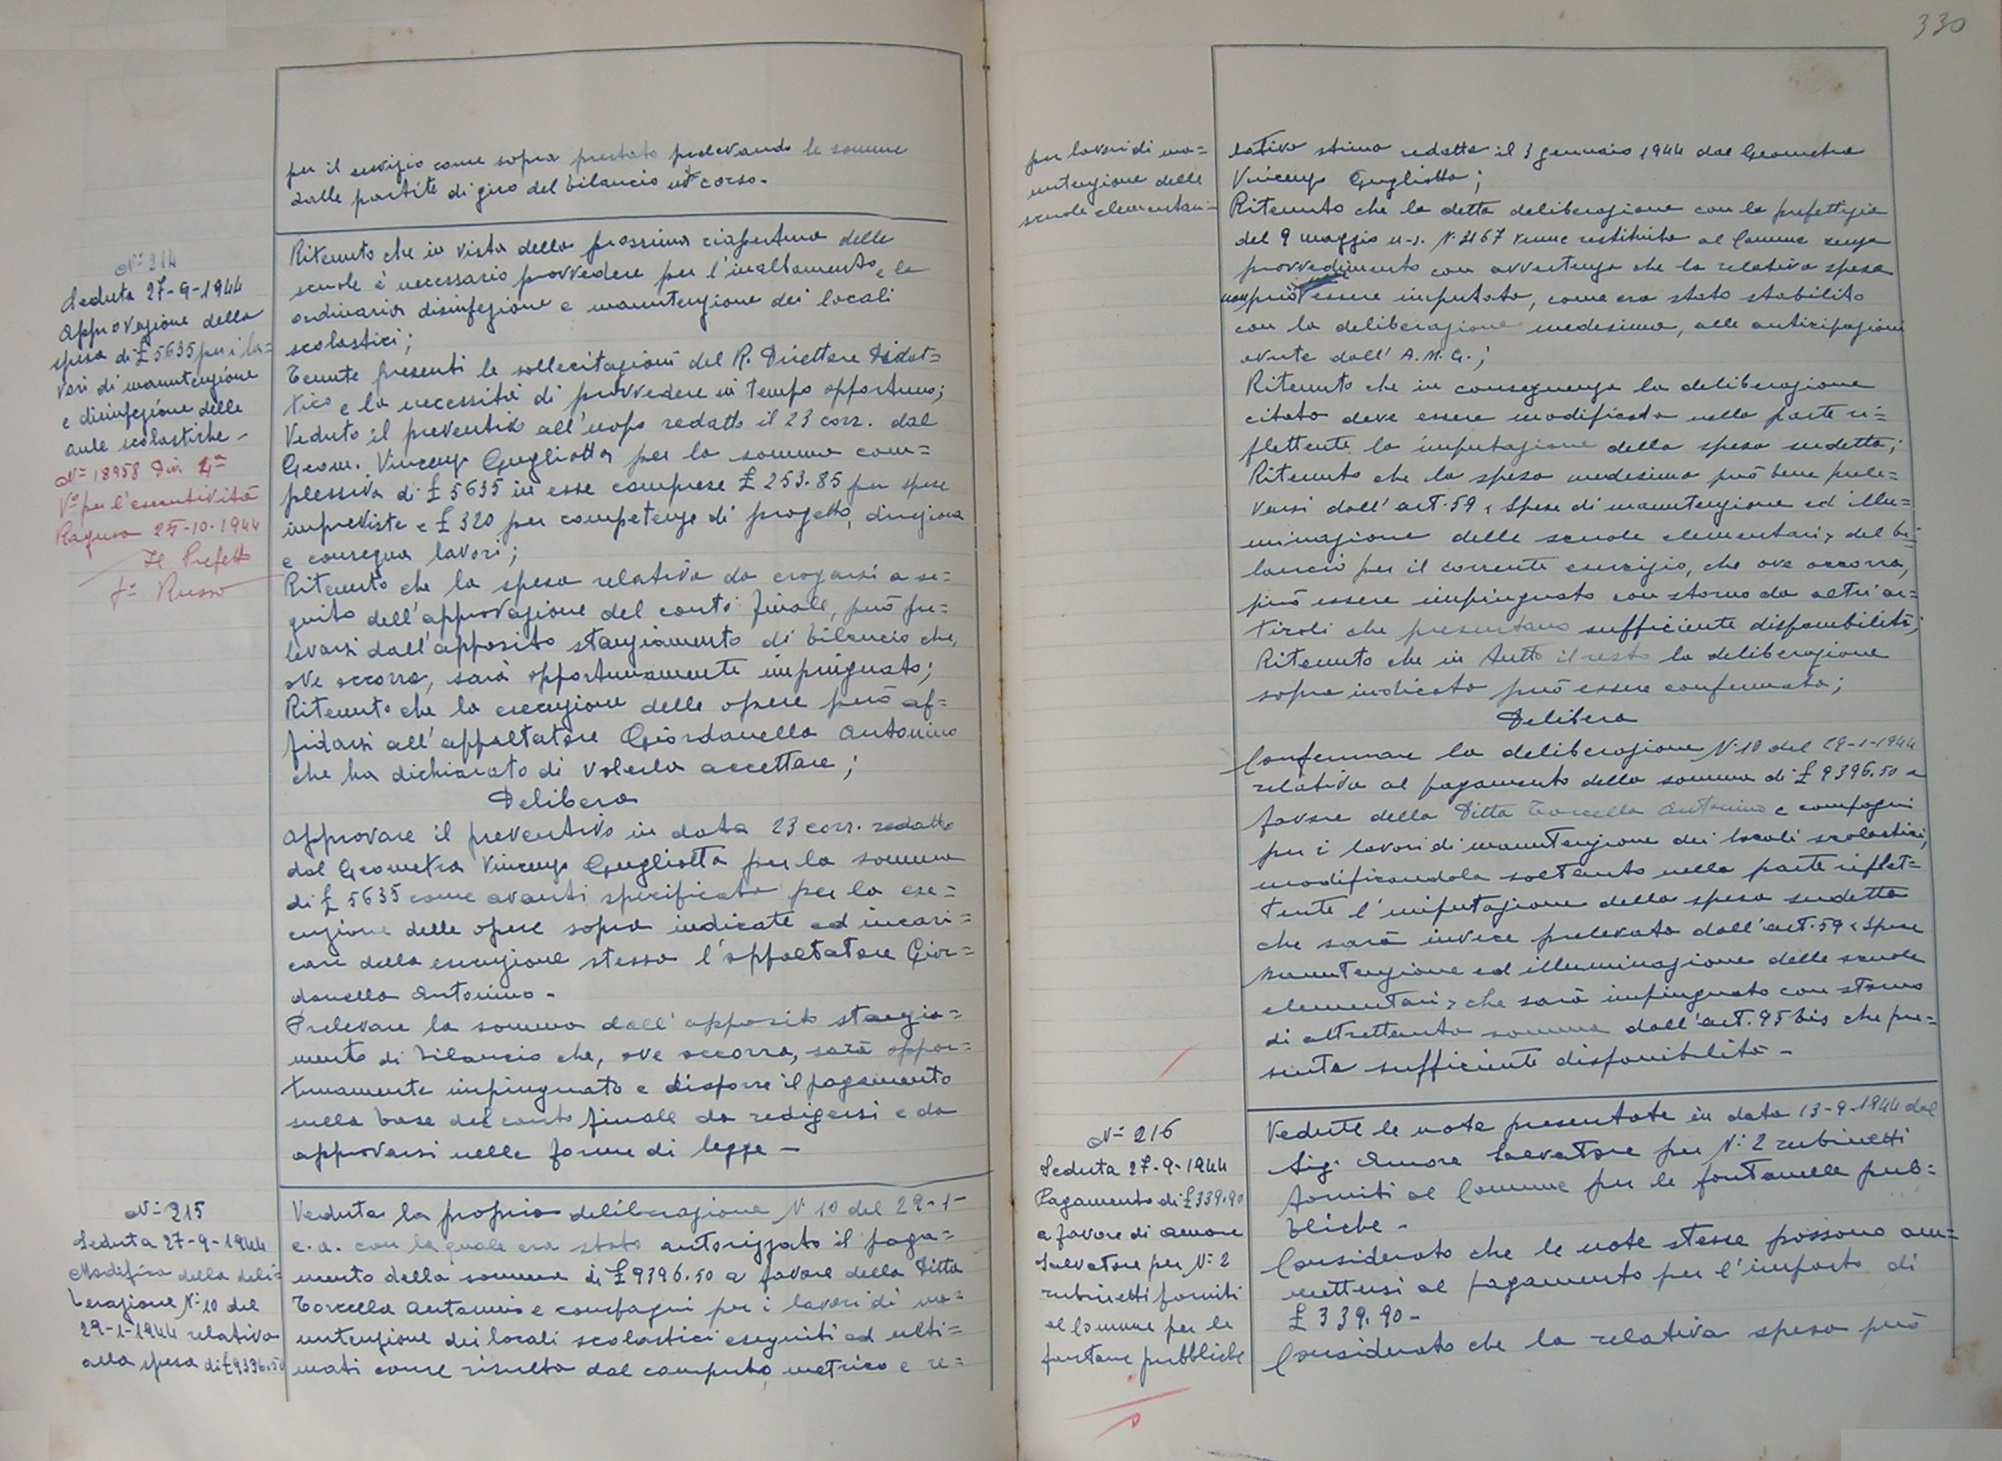 per il servizio come sopra prestato prelevando le somme
dalle partite di giro del bilancio in corso.
N. 214
Seduta 27-9-1944
Approvazione della
spesa di £ 5635 per i la=
vori di manutenzione
e disinfezione delle
aule scolastiche -
N. 18958 Div. 4ª
V° per l'esecutività
Ragusa 25-10-1944
Il Prefetto
f° Russo
Ritenuto che in vista della prossima riapertura delle
scuole è necessario provvedere per l'imbiancamento e la
ordinaria disinfezione e manutenzione dei locali
scolastici;
Tenute presenti le sollecitazioni del R. Direttore Didat=
tico e la necessità di provvedere in tempo opportuno;
Veduto il preventivo all'uopo redatto il 23 corr. dal
Geom. Vincenzo Gugliotta per la somma com=
plessiva di £ 5635 in esse comprese £ 253.85 per spese
impreviste e £ 320 per competenze di progetto, direzione
e consegna lavori;
Ritenuto che la spesa relativa da erogarsi a se=
guito dell'approvazione del conto finale, può pre=
levarsi dall'apposito stanziamento di bilancio che,
ove occorra, sarà opportunamente impinguato;
Ritenuto che la esecuzione delle opere può af=
fidarsi all'appaltatore Giordanella Antonino
che ha dichiarato di volerla accettare;
Delibera
Approvare il preventivo in data 23 corr. redatto
dal Geometra Vincenzo Gugliotta per la somma
di £ 5635 come avanti specificata per la ese=
cuzione delle opere sopra indicate ed incari=
care della esecuzione stessa l'appaltatore Gior=
danella Antonino -
Prelevare la somma dall'apposito stanzia=
mento di bilancio che, ove occorra, sarà oppor=
tunamente impinguato e disporre il pagamento
sulla base del conto finale da redigersi e da
approvarsi nelle forme di legge -
N. 215
Seduta 27-9-1944
Modifica della deli=
berazione N. 10 del
29-1-1944 relativa
alla spesa di £ 9396.50
Veduta la propria deliberazione N. 10 del 29-1-
c.a. con la quale era stato autorizzato il paga=
mento della somma di £ 9396.50 a favore della Ditta
Torcella Antonino e compagni per i lavori di ma=
nutenzione dei locali scolastici eseguiti ed ulti=
mati come risulta dal computo metrico e re=
330
per lavori di ma=
nutenzione delle
scuole elementari -
lativa stima redatta il 3 gennaio 1944 dal Geometra
Vincenzo Gugliotta;
Ritenuto che la detta deliberazione con la prefettizia
del 9 maggio u.s. N. 2167 venne restituita al Comune senza
provvedimento con avvertenza che la relativa spesa
non può essere imputata, come era stato stabilito
con la deliberazione medesima, alle anticipazioni
avute dall'A.M.G.;
Ritenuto che in conseguenza la deliberazione
citata deve essere modificata nella parte ri=
flettente la imputazione della spesa sudetta;
Ritenuto che la spesa medesima può bene prele=
varsi dall'art. 59 "Spese di manutenzione ed illu=
minazione delle scuole elementari" del bi=
lancio per il corrente esercizio, che ove occorra,
può essere impinguato con storno da altri ar=
ticoli che presentano sufficiente disponibilità;
Ritenuto che in tutto il resto la deliberazione
sopra indicata può essere confermata;
Delibera
Confermare la deliberazione N. 10 del 29-1-1944
relativa al pagamento della somma di £ 9396.50 a
favore della Ditta Torcella Antonino e compagni
per i lavori di manutenzione dei locali scolastici,
modificandola soltanto nella parte riflet=
tente l'imputazione della spesa sudetta
che sarà invece prelevata dall'art. 59 "Spese
manutenzione ed illuminazione delle scuole
elementari" che sarà impinguato con storno
di altrettanta somma dall'art. 95 bis che pre=
senta sufficiente disponibilità -
N. 216
Seduta 27-9-1944
Pagamento di £ 339.90
a favore di Amore
Salvatore per N. 2
rubinetti forniti
al Comune per le
fontane pubbliche
Vedute le note presentate in data 13-9-1944 dal
Sig. Amore Salvatore per N. 2 rubinetti
forniti al Comune per le fontanelle pub=
bliche -
Considerato che le note stesse possono am=
mettersi al pagamento per l'importo di
£ 339.90 -
Considerato che la relativa spesa può